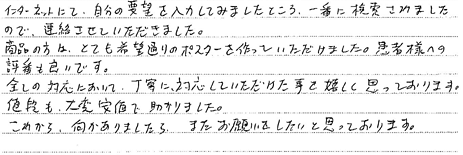 インターネットにて、自分の要望を入力してみましたところ、一番に検索されました
ので、連絡させていただきました。
商品の方は、とても希望通りのポスターを作っていただけました。患者様への
評番も良いです。
全ての対応において、丁寧に対応していただけた事を嬉しく思っております。
値段も、大変安価で助かりました。
これから、何かありましたら、またお願いをしたいと思っております。